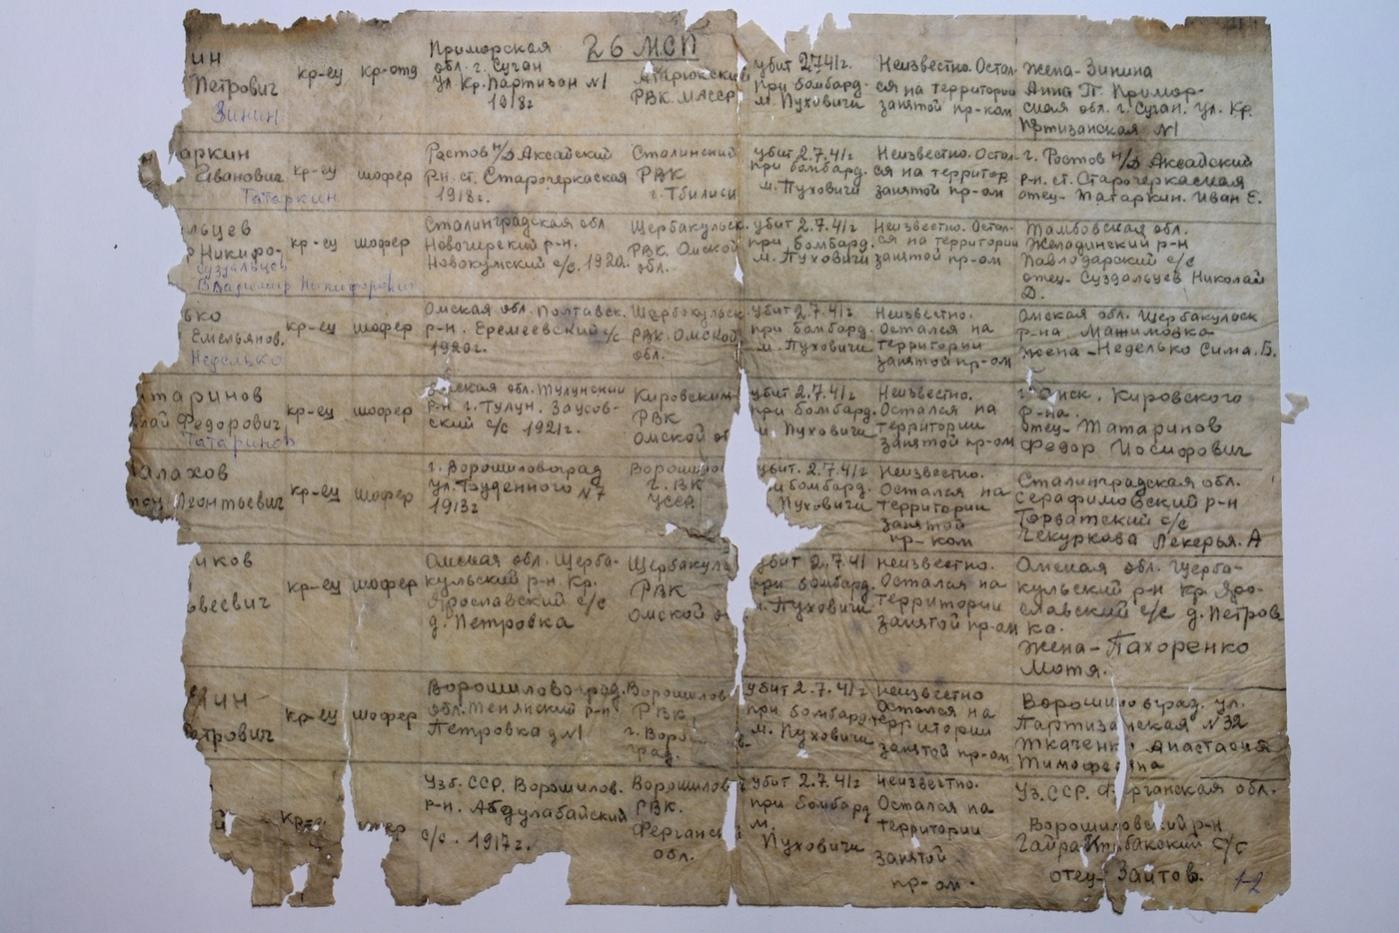 26 МСП
ин
Петрович
Зинин
кр-ец
кр-отд
Приморская
обл. г. Сучан
ул. Кр. Партизан №1
1918г
Атярюжский
РВК МАССР
убит 2.7.41г.
при бомбард.
м. Пуховичи
Неизвестно. Остал-
ся на территории
занятой пр-ком
Жена- Зинина
Анна П. Примор-
ская обл. г. Сучан. ул. Кр.
Партизанская №1
аркин
Иванович
Татаркин
кр-ец
шофер
Ростов н/Д Аксайский
р-н. ст. Старочеркаская
1918г.
Сталинский
РВК
г. Тбилиси
убит 2.7.41г
при бомбард.
м. Пуховичи
Неизвестно. Остал-
ся на територ
занятой пр-ом
г. Ростов н/Д Аксайский
р-н. ст. Старочеркаская
отец- Татаркин. Иван Е.
льцев
р Никифо-
Суздальцев
Владимир Никифорович
кр-ец
шофер
Сталинградская обл
Новочирский р-н.
Новокумский с/с. 1920.
Щербакульск.
РВК Омской
обл.
убит 2.7.41г
при бомбард.
м. Пуховичи
Неизвестно. Остал-
ся на територии
занятой пр-ом
Тамбовская обл.
р-н
Павлодарский с/с
отец- Суздальцев Николай
Д.
ько
Емельянов.
Неделько
кр-ец
шофер
Омская обл. Полтавск.
р-н. Еремеевский с/с
1920г.
Щербакульск
РВК. Омской
обл.
убит 2.7.41г
при бомбард.
м. Пуховичи
Неизвестно.
Остался на
територии
занятой пр-ом
Омская обл. Щербакульск
р-на
жена-Неделько Сима. Б.
таринов
лай Федорович
Татаринов
кр-ец
шофер
ская обл. Тулунский
р-н г. Тулун. Заусов-
ский с/с 1921г.
Кировским
РВК
Омской об
убит 2.7.41г
при бомбард.
м. Пуховичи
Неизвестно.
Остался на
територии
занятой пр-ом
г. Омск. Кировского
р-на.
отец- Татаринов
Федор Иосифович
алахов
Леонтьевич
кр-ец
шофер
г. Ворошиловоград
ул. Буденного №7
1913г
Ворошило
г. ВК
УССР
убит. 2.7.41г
и бомбард.
Пуховичи
Неизвестно.
Остался на
територии
занятой
пр-ком
Сталинградская обл.
Серафимовский р-н
Горбатский с/с
Чекуркова Лекерья. А
иков
ьвеевич
кр-ец
шофер
Омская обл. Щерба-
кульский р-н. Кр.
Ярославский с/с
д. Петровка
Щербакуль
РВК
Омской о
убит 2.7.41
при бомбард.
м. Пуховичи
неизвестно.
Остался на
територии
занятой пр-ом
Омская обл. Щерба-
кульский р-н Кр. Яро-
славский с/с д. Петров
ка.
Жена- Пахоренко
Мотя.
ин
етрович
кр-ец
шофер
Ворошиловоград.
обл. р-н
Петровка д №1
Ворошилов
РВК
г. Воро
град.
убит 2.7.41г
при бомбард.
м. Пуховичи
неизвестно
Остался на
територии
занятой пр-ом
Ворошиловград. ул.
Партизанская №32
Ткаченк Анастасия
Тимофе на
й
кр-е
фер
Узб. ССР. Ворошилов.
р-н. Абдулабайский
с/с. 1917г.
Ворошилов
РВК.
Ферганс
обл.
убит 2.7.41г
при бомбард
м.
Пуховичи
неизвестно.
Остался на
територии
занятой
пр-ом.
Уз.ССР. Ферганская обл.
Ворошиловский р-н
с/с
отец- Заитов.
1-2